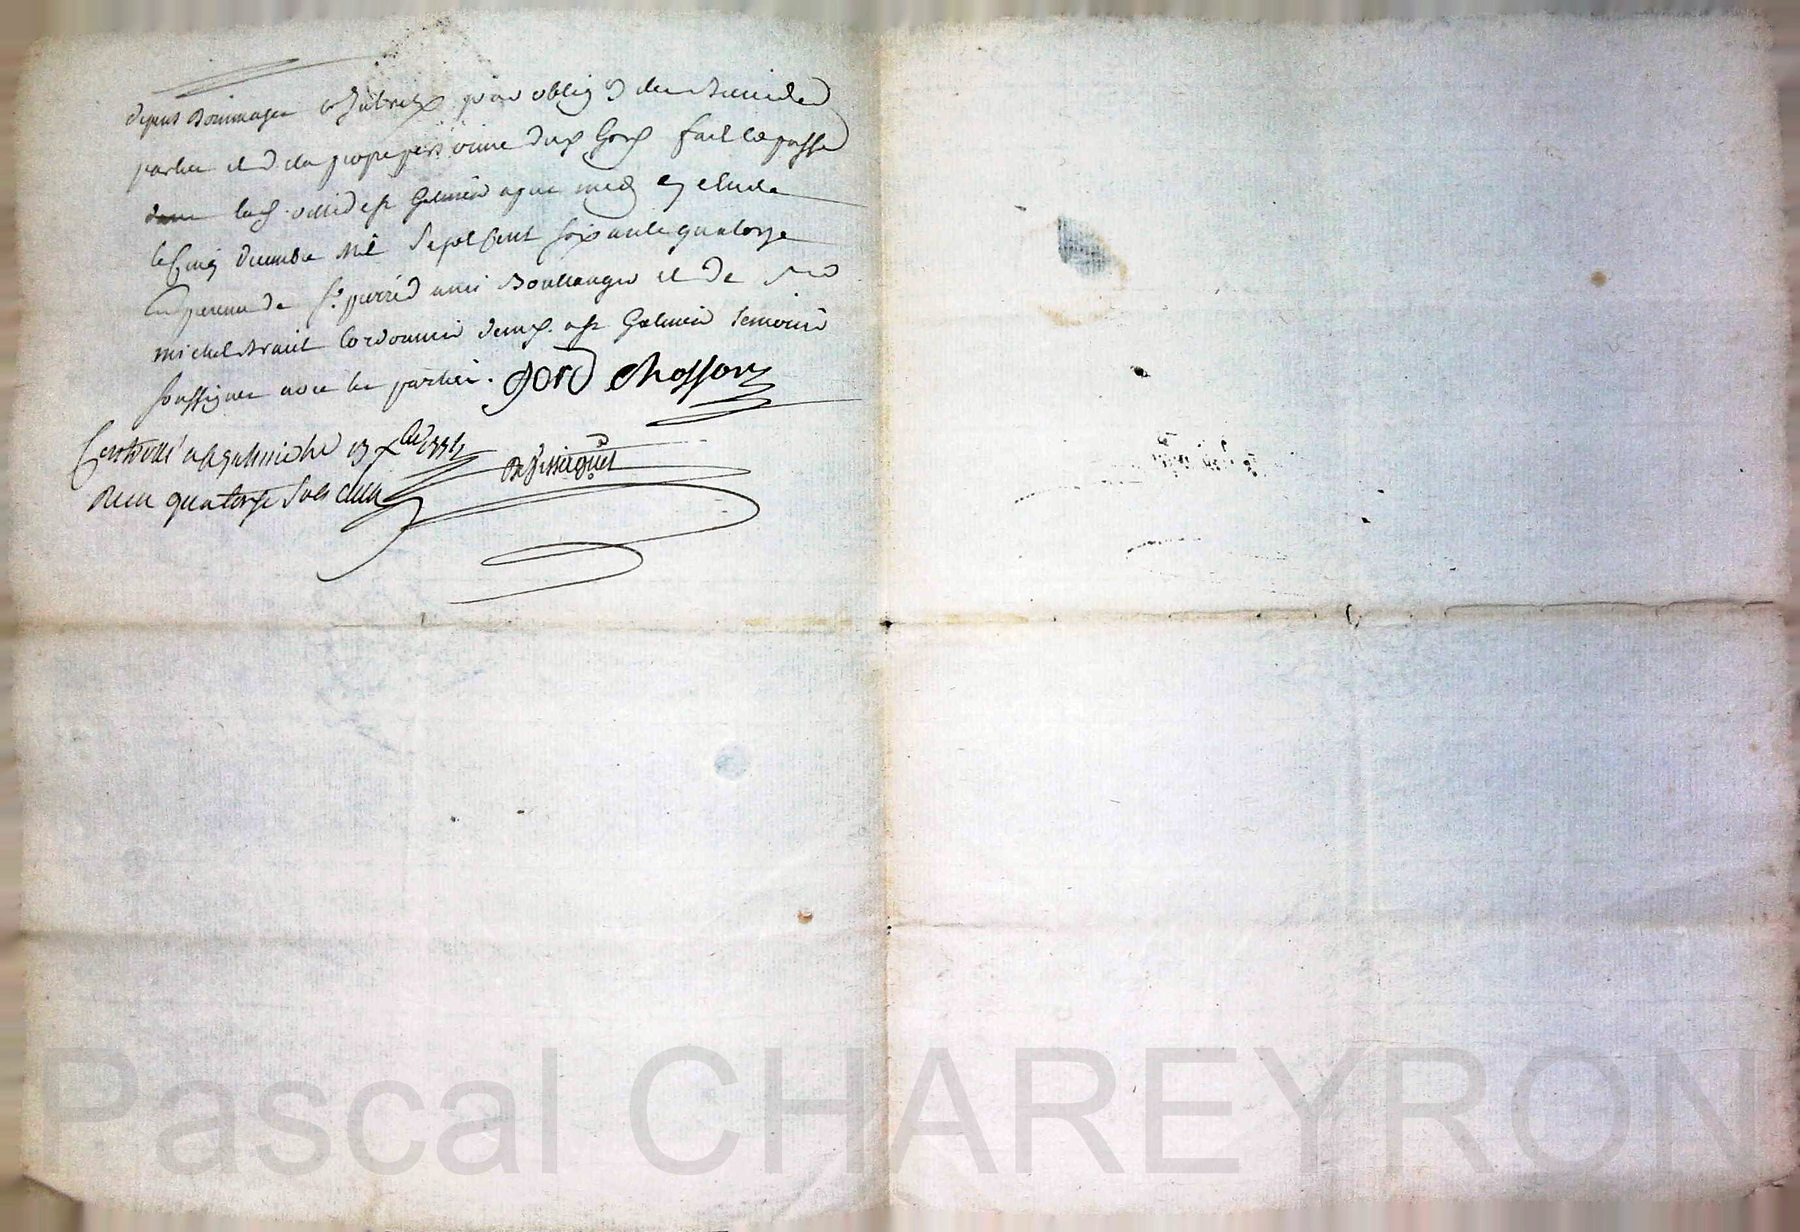 depens dommages & Interets pour oblig des Biens des
parties et de la propre personne dud. Gord fait et passé
lad. ville de st Galmier apres midy en etude
le cinq decembre mil sept cent soixante quatorze
En presence de sr pierre Boullanger et de sr
michel Cordonnier dud. st Galmier temoins
soussignes avec les parties. Gord Chosson
Controllé a st galmier le 13 Xbre 1774
Recu quatorze sols
Pascal CHAREYRON